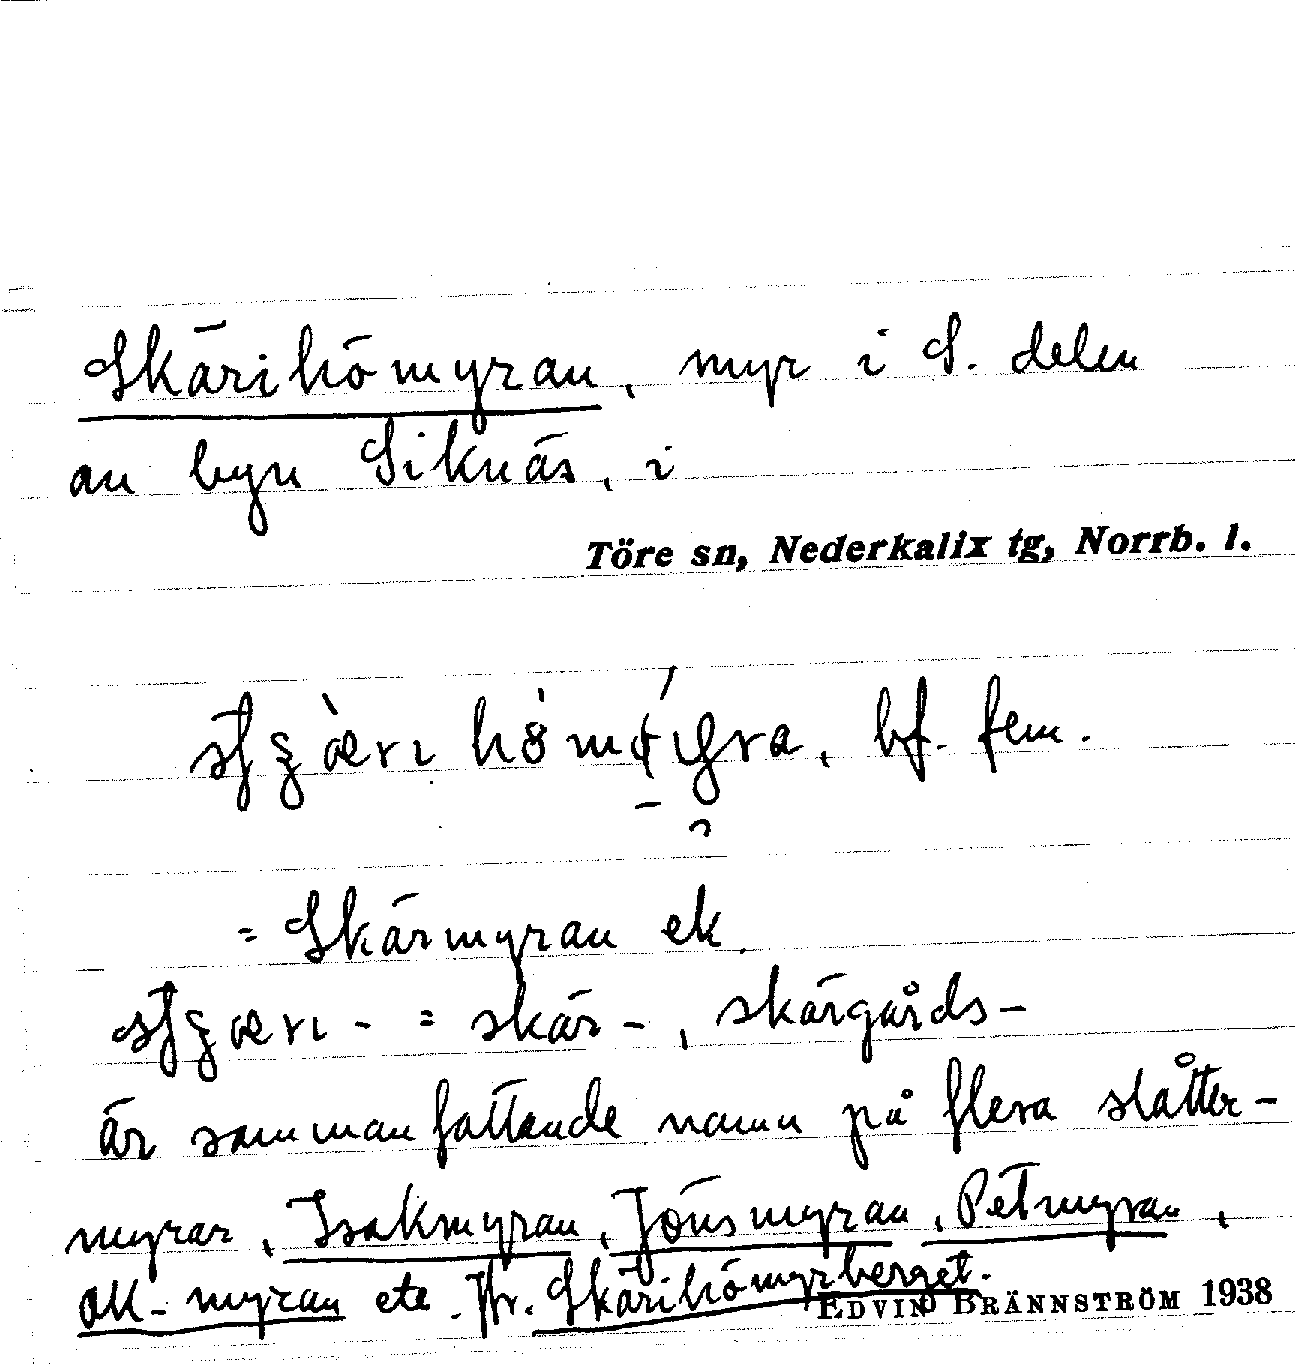 Skärihömyran, myr i S. delen
av byn Siknäs, i
Töre sn, Nederkalix tg, Norrb. l.
bf. fem.
= Skärmyran ek.
= skär-, skärgårds-
är sammanfattande namn på flera slåtter-
myrar, Isakmyran, Jönsmyran, Petmyran,
OK-myran etc. Jfr. Skärihömyrberget.
EDVIN BRÄNNSTRÖM 1938